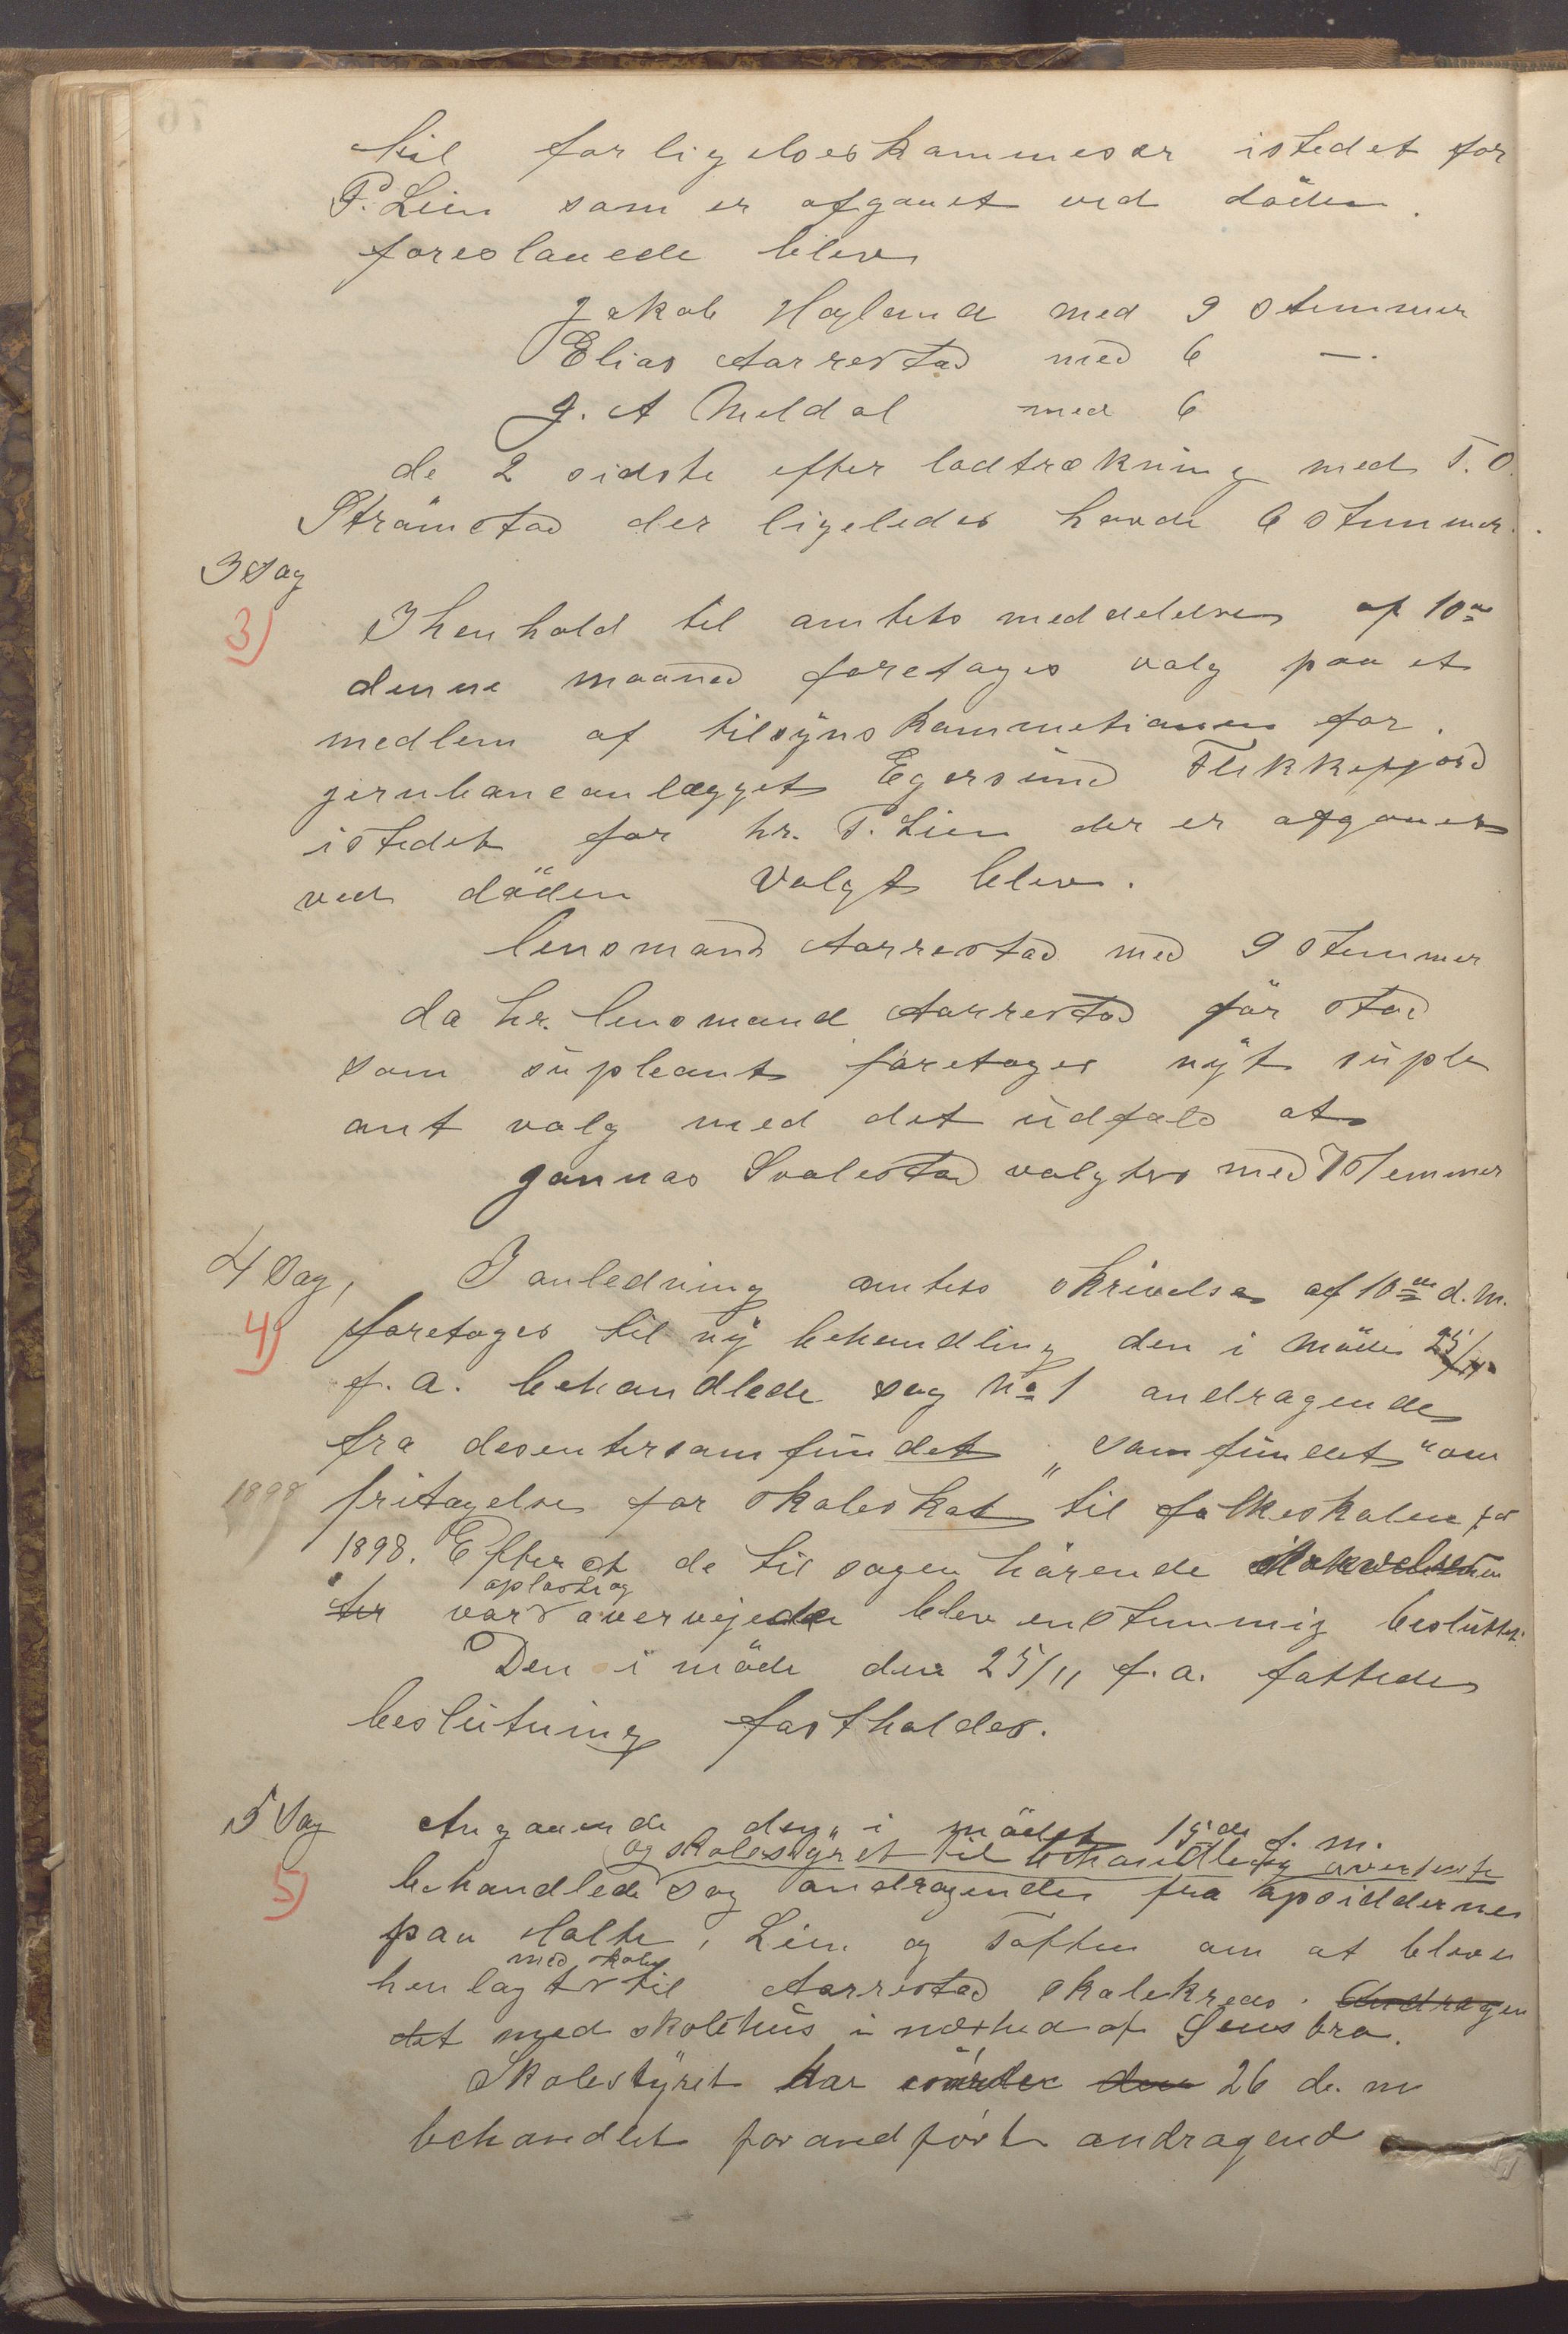 til forligelseskammesær istedet for
P. Lien som er afgaaet ved döden.
foreslaaede blev
Jakob Hogland med 9 stemmer
Elias Aarrestad med 6 —.
J. A Meldal med 6
de 2 sidste efter lodtrækning med T. O.
Strömstad der ligeledes havde 6 stemmer.
3 Sag
3)
I henhold til amtets meddelelse af 10de
denne maaned foretages valg paa et
medlem af tilsÿnskommetionen for
jernbaneanlægget Egersünd Flekkefjord
istedet for hr. P. Lien der er afgaaet
ved döden Valgt blev.
lensmand Aarrestad med 9 stemmer
da hr. lensmand Aarrestad för stod
som süpleant foretages nÿt süple
ant valg med det üdfald at
Jonnas Svalestad valgtes med 7 stemmer
4 Sag,
4)
I anledning amtets skrivelse af 10de d. m.
foretages til nÿ behandling den i möde 25/11
f. a. behandlede sag No 1 andragende
fra desentersamfündet „samfündet“ om
1898
fritagelse for skoleskat til folkeskolen for
1898. Efter at de til sagen hörende
oplæst og
ter var overvejede blev enstemmig beslüttet:
Den i möde den 25/11 f. a. fattede
beslütning fastholdes.
5 Sag
5)
Angaaende den i mödet 15de f. m.
og skolestÿret til behandling oversendte
behandlede sag andragende fra opsidderne
paa Holte, Lien og Toften om at bleve
med skole
henlagt til Aarrestad skolekreds. Andragen
det med skolehüs i nærhed af
Skolestÿret har den 26 d. m
behandlet foranförte andragend